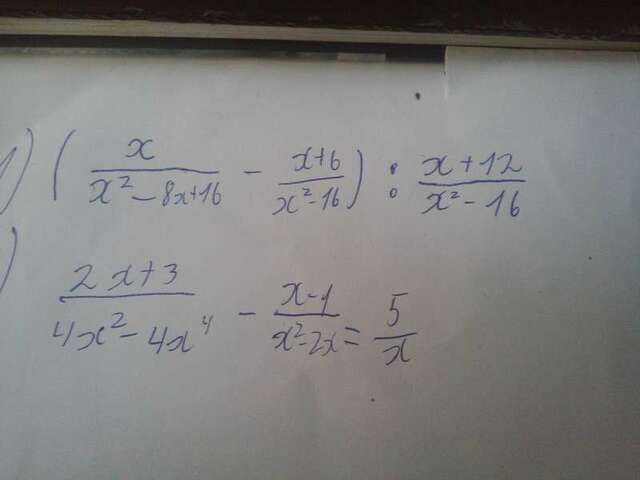 1) ( x / (x² - 8x + 16) - (x + 6) / (x² - 16) ) : (x + 12) / (x² - 16)
) (2x + 3) / (4x² - 4x⁴) - (x - 1) / (x² - 2x) = 5 / x